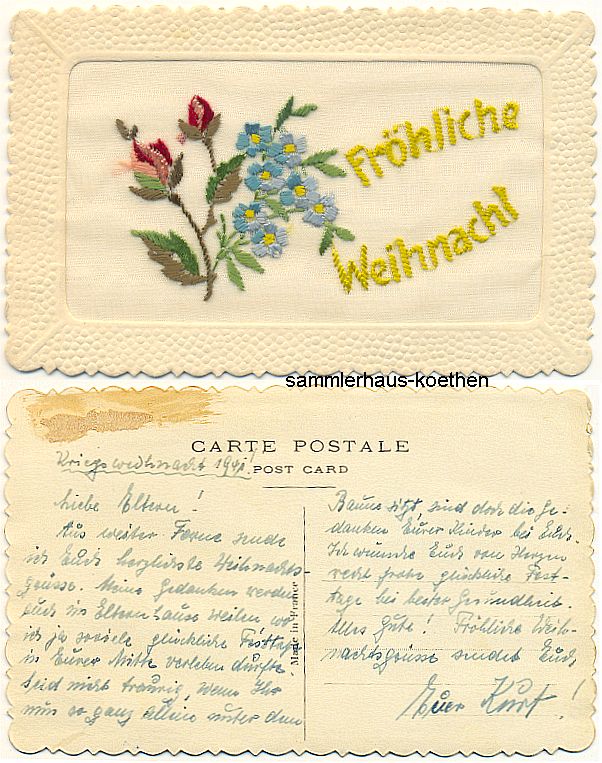 Fröhliche
Weihnacht
sammlerhaus-koethen
CARTE POSTALE
POST CARD
Kriegsweihnacht 1941!
Liebe Eltern!
Aus weiter Ferne sende
ich Euch herzlichste Weihnachts
grüsse. Meine Gedanken werden
auch im Elternhause weilen, wo
ich ja soviele glückliche Festtage
in Eurer Mitte verleben durfte.
Seid nicht traurig, wenn Ihr
nun so ganz alleine unter dem
Made in France
Baume sitzt, sind doch die Ge-
danken Eurer Kinder bei Euch.
Ich wünsche Euch von Herzen
recht frohe, glückliche Fest-
tage bei bester Gesundheit.
Alles Gute! Fröhliche Weih-
nachtsgrüsse sendet Euch
Euer Kurt!